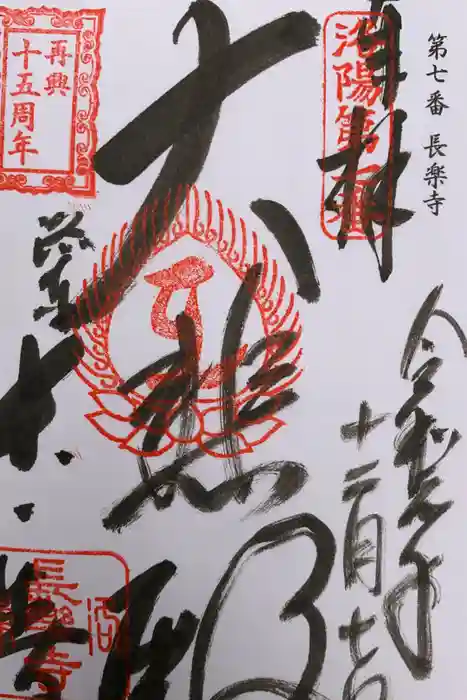 第七番 長楽寺
奉拝
洛陽第七番
令和元年
十二月七日
大悲
再興
十五周年
長樂寺